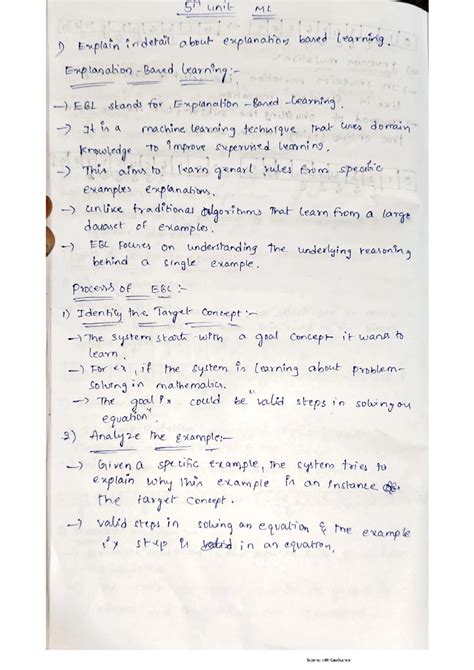 5th unit ML
1) Explain indetail about explanation based learning.
Explanation-Based Learning:-
→ EBL stands for Explanation-Based-Learning.
→ It is a machine learning technique that uses domain
knowledge to improve supervised learning.
→ This aims to learn genarl rules from specific
examples explanations.
→ unlike traditional algorithms that learn from a large
dataset of examples.
→ EBL focuses on understanding the underlying reasoning
behind a single example.
Process of EBL :-
1) Identity the Target Concept:-
→ The system starts with a goal concept it wants to
learn.
→ For ex, if the system is learning about problem-
solving in mathematics.
→ The goal is could be "valid steps in solving an
equation".
2) Analyze the example:-
→ Given a specific example, the system tries to
explain why this example is an instance of
the target concept.
→ valid steps in solving an equation & the example
is step is valid in an equation.
Scanned with CamScanner